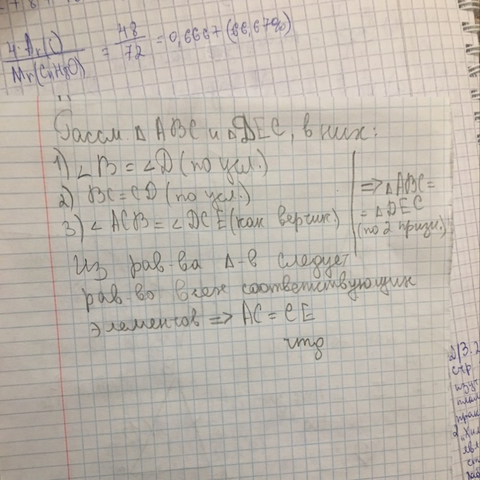 4·Ar(C)/Mr(C4H8O) = 48/72 = 0,6667 (66,67%)
Рассм △ ABC и △DEC, в них:
1) ∠B = ∠D (по усл.)
2) BC = CD (по усл.)
3) ∠ACB = ∠DCE (как вертик)
=> △ABC =
= △DEC
(по 2 призн.)
Из рав-ва △-в следует
рав-во всех соответствующих
элементов => AC = CE
чтд